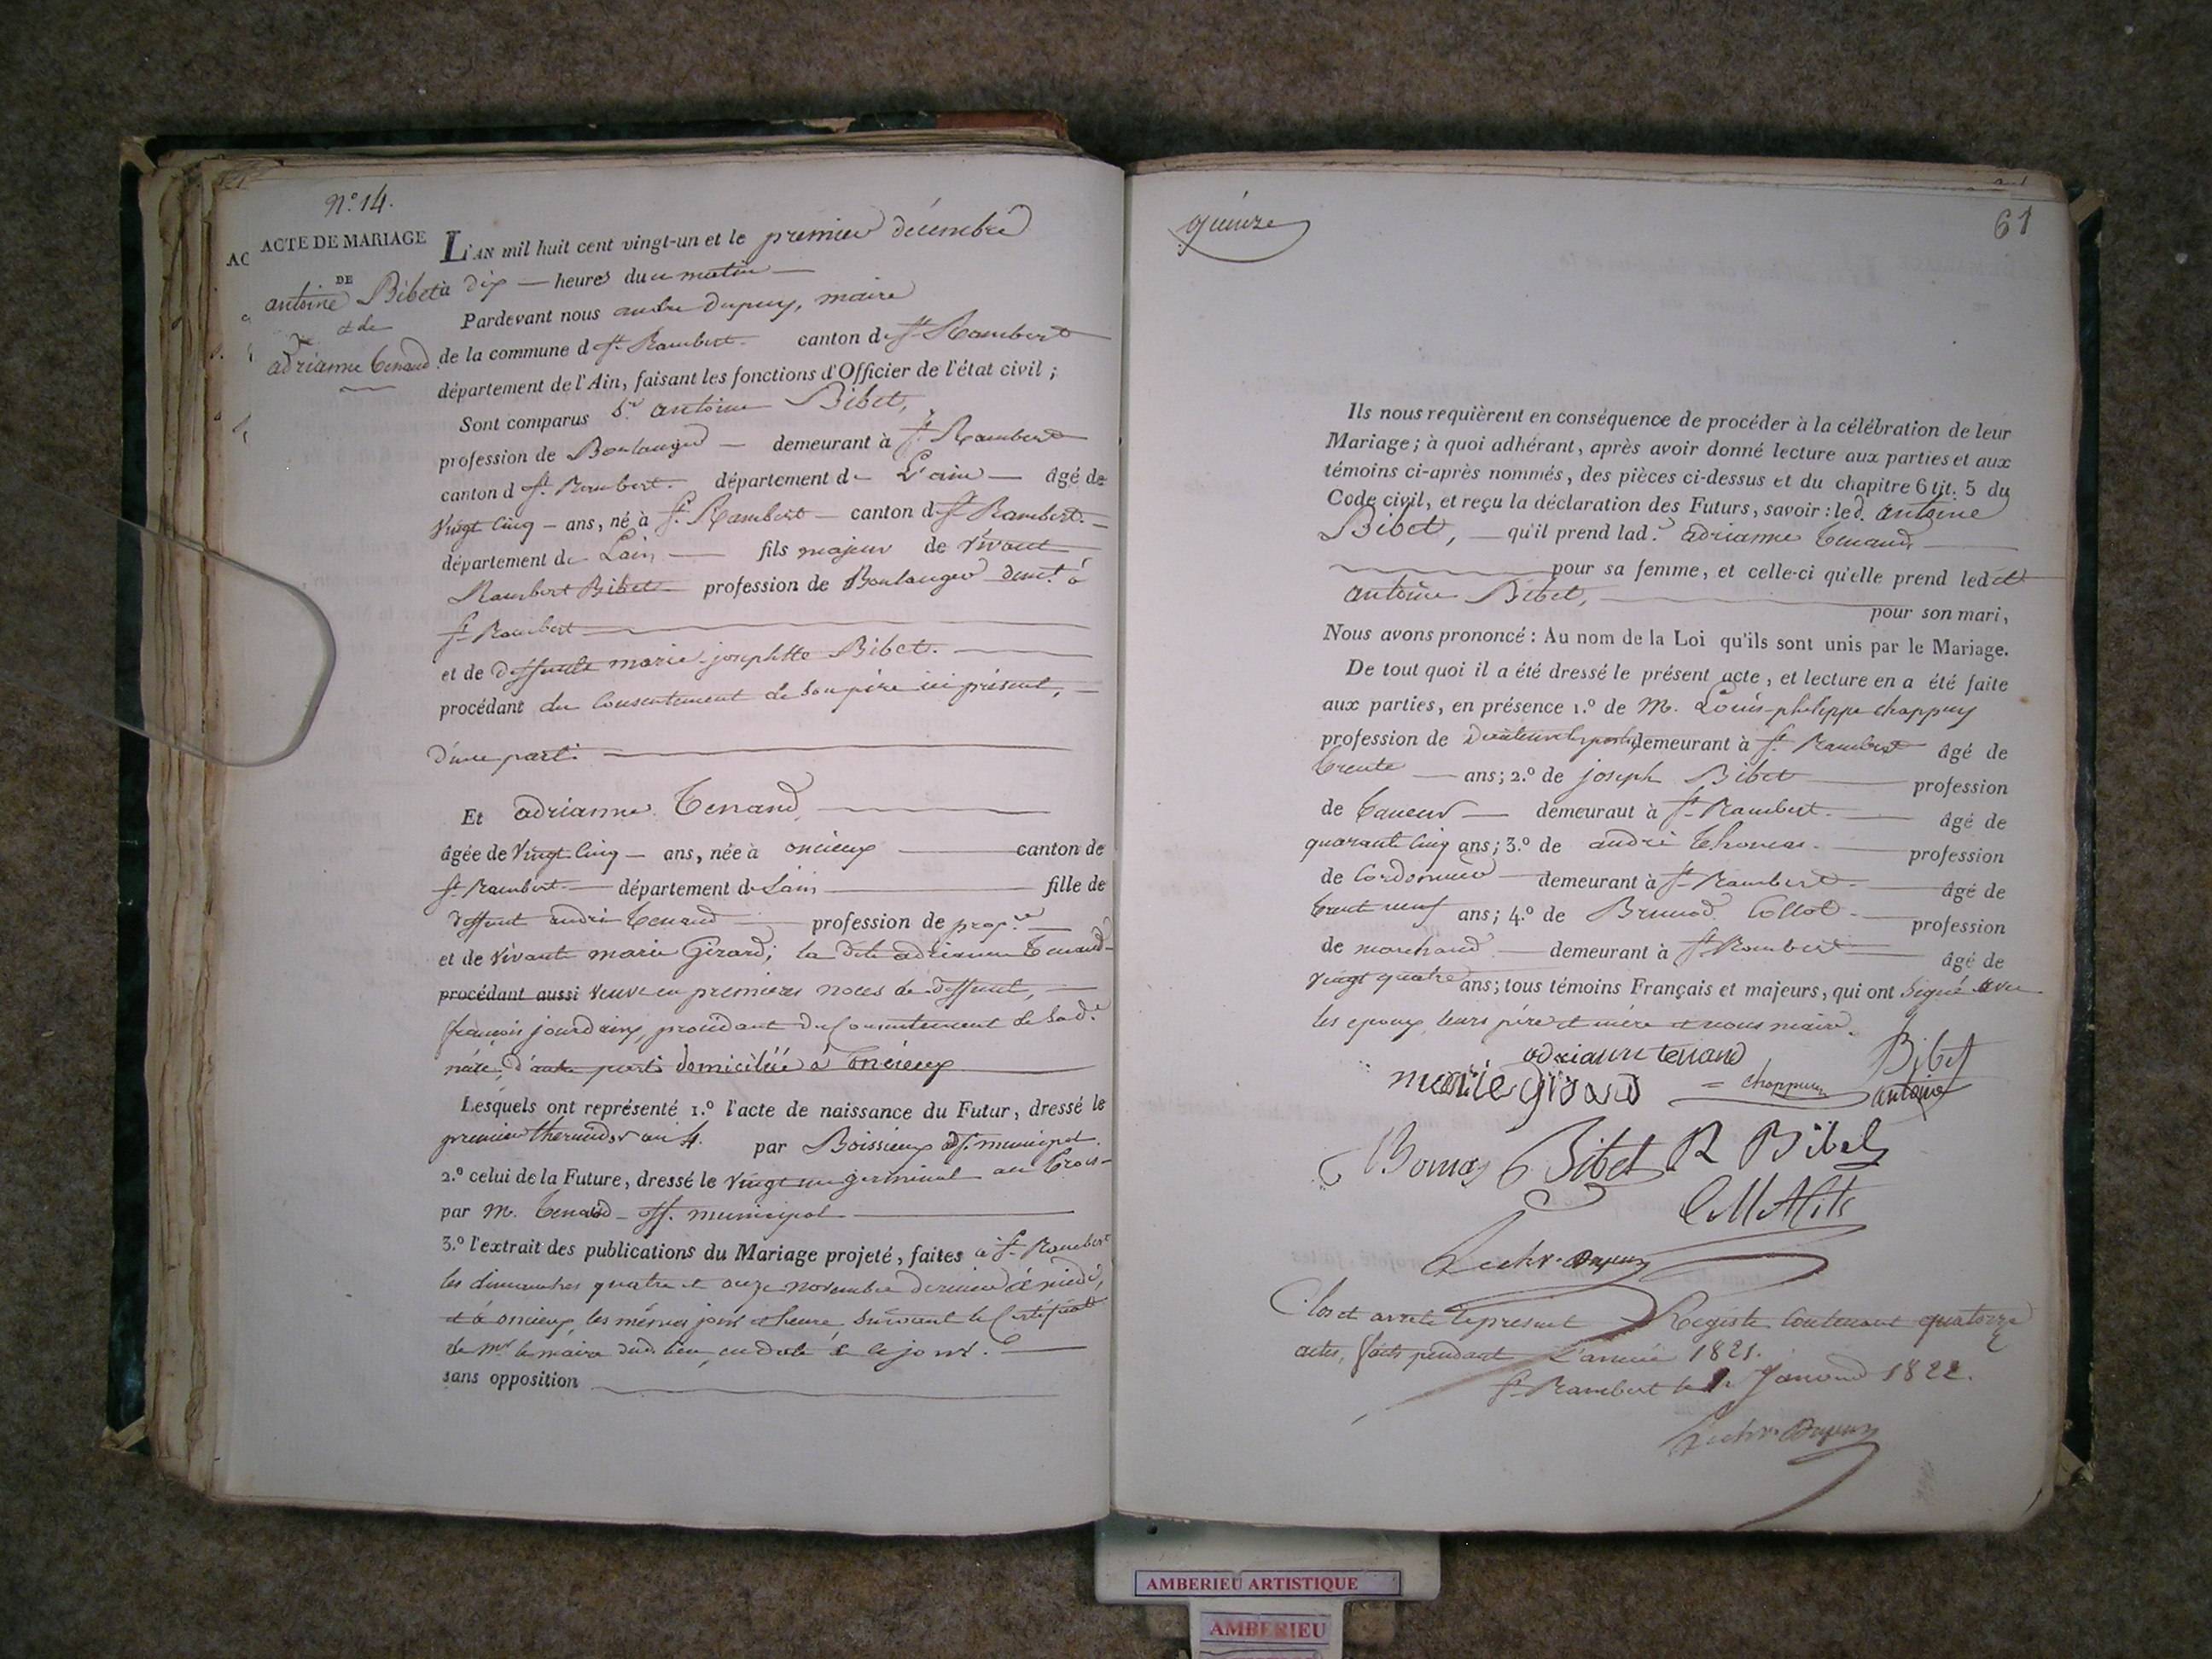 N.° 14.
ACTE DE MARIAGE
DE
antoine Bibet
et de
adrianne tenand
AC
L'AN mil huit cent vingt-un et le premier décembre
à dix — heures du matin —
Pardevant nous andre dupuy, maire
de la commune d St. Rambert. canton de St Rambert
département de l'Ain, faisant les fonctions d'Officier de l'état civil ;
Sont comparus Sr. antoine Bibet,
profession de Boulanger — demeurant à St. Rambert
canton d St. Rambert. département de L'ain — âgé de
vingt cinq — ans, né à St. Rambert — canton d St Rambert. —
département de Lain — fils majeur de vivant
Rambert Bibet profession de Boulanger demt. à
St Rambert
et de deffunte marie josephtte Bibet. —
procédant du consentement de son père ici présent, —
d'une part.
Et adrianne Tenand,
âgée de vingt cinq — ans, née à oncieux canton de
St. Rambert — département de Lain fille de
deffunt andré tenand profession de propre.
et de vivante marie Girard; la dite adrianne tenand
procédant aussi veuve en premieres noces de deffunt, —
françois jourdain, procédant du Consentement de sade.
mère, d'autre parti domiciliée à oncieux
Lesquels ont représenté 1.° l'acte de naissance du Futur, dressé le
premier thermidor an 4. par Boissieux off. municipal.
2.° celui de la Future, dressé le vingt un germinal an trois —
par M. tenand off. municipal
3.° l'extrait des publications du Mariage projeté, faites à St. Rambert
les dimanches quatre et onze novembre dernier à midi,
et à oncieux, les mêmes jours et heure suivant le Certificat
de Mr le maire dud. lieu, en date de ce jour.
sans opposition
quinze
61
Ils nous requièrent en conséquence de procéder à la célébration de leur
Mariage ; à quoi adhérant, après avoir donné lecture aux parties et aux
témoins ci-après nommés, des pièces ci-dessus et du chapitre 6 tit. 5 du
Code civil, et reçu la déclaration des Futurs, savoir : le d. antoine
Bibet, — qu'il prend lad.e adrianne tenand,
pour sa femme, et celle-ci qu'elle prend ledit
antoine Bibet, pour son mari,
Nous avons prononcé : Au nom de la Loi qu'ils sont unis par le Mariage.
De tout quoi il a été dressé le présent acte, et lecture en a été faite
aux parties, en présence 1.° de M. Louis-philippe chappuy
profession de demeurant à St. Rambert âgé de
trente — ans; 2.° de joseph Bibet profession
de taneur — demeurant à St. Rambert. âgé de
quarante cinq ans; 3.° de andré thomas. profession
de Cordonnier demeurant à St. Rambert. âgé de
trent neuf ans; 4.° de Brunod Collot profession
de marchand — demeurant à St Rambert âgé de
vingt quatre ans; tous témoins Français et majeurs, qui ont signé avec
les epoux, leurs père et mère et nous maire.
adrianne tenand
marie girard
chappuy
Bibet
antoine
Bibet
R Bibet
Dupuy
Clos et arreté le present Registe Contenant quatorze
actes, faits pendant L'année 1821.
St Rambert le Janvier 1822.
Dupuy
AMBERIEU ARTISTIQUE
AMBERIEU